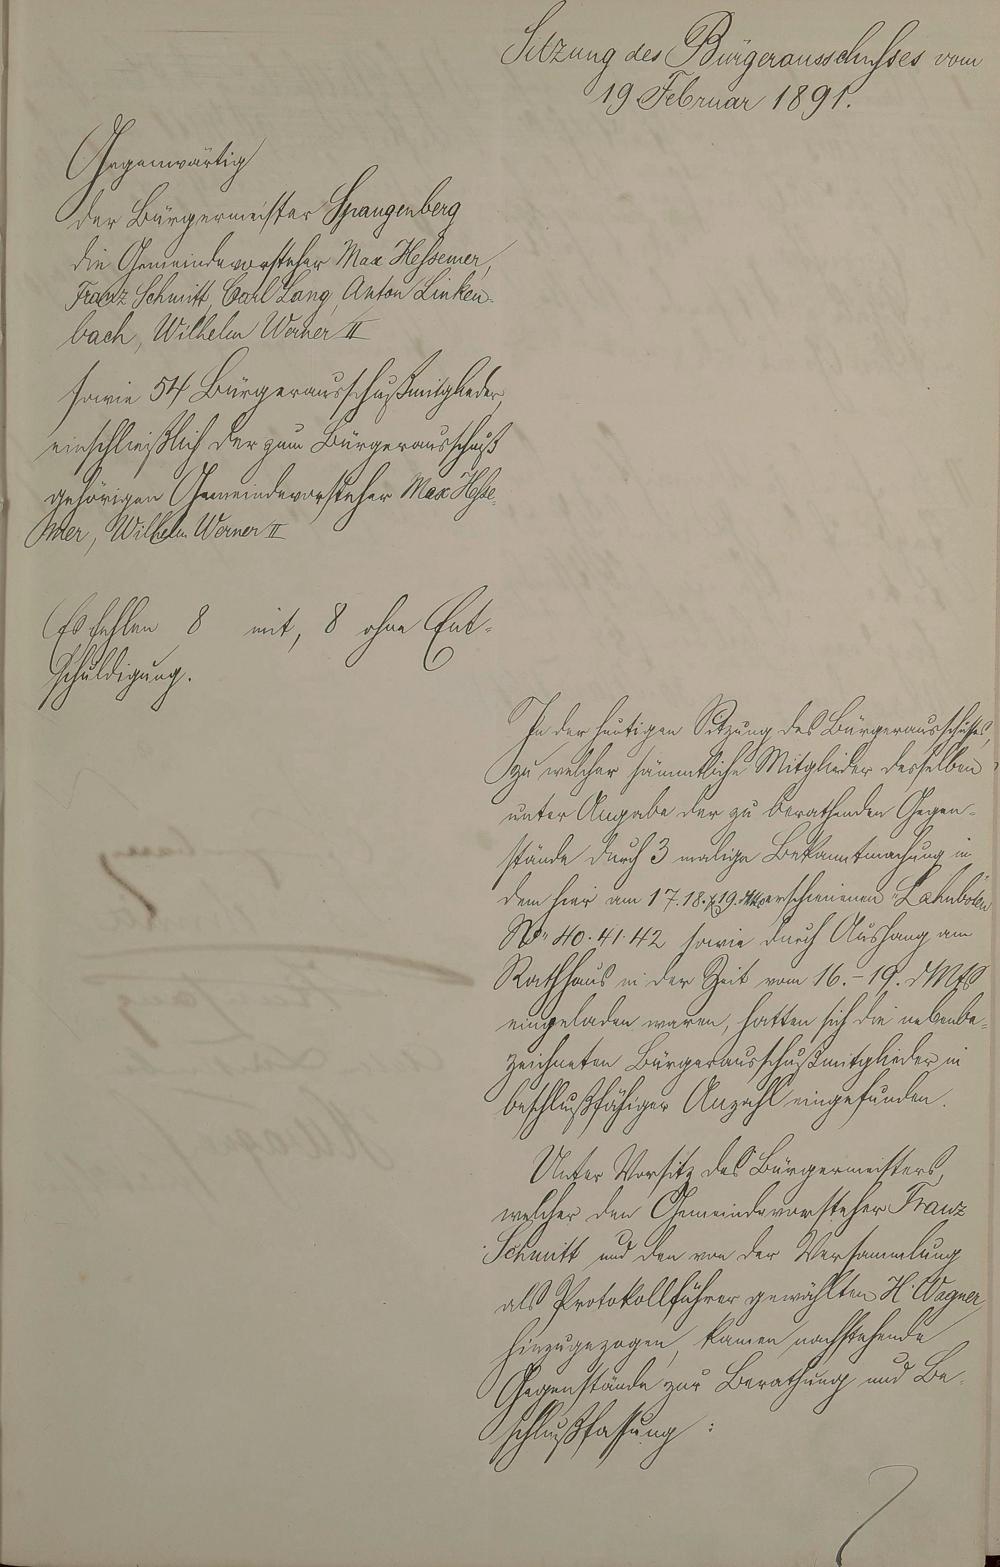 Sitzung des Bürgerausschusses vom
19 Februar 1891.
Gegenwärtig
der Bürgermeister Spangenberg
die Gemeindevorsteher Max Hessemer,
Franz Schmitt, Carl Lang, Anton Linken-
bach, Wilhelm Werner II
sowie 54 Bürgerausschußmitglieder,
einschließlich der zum Bürgerausschuß
gehörigen Gemeindevorsteher Max Hesse-
mer, Wilhelm Werner II
Es fehlen 8 mit, 8 ohne Ent-
schuldigung.
In der heutigen Sitzung des Bürgerausschusses,
zu welcher sämmtliche Mitglieder desselben
unter Angabe der zu berathenden Gegen-
stände durch 3 malige Bekanntmachung in
dem hier am 17. 18. 19. erschienenen "Lahnboten
No 40. 41. 42 sowie durch Aushang am
Rathhaus in der Zeit vom 16.-19. d Mts
eingeladen waren, hatten sich die nebenbe-
zeichneten Bürgerausschußmitglieder in
beschlußfähiger Anzahl eingefunden.
Unter Vorsitz des Bürgermeisters,
welcher den Gemeindevorsteher Franz
Schmitt und den von der Versammlung
als Protokollführer gewählten H. Wagner
hinzugezogen, kamen nachstehende
Gegenstände zur Berathung und Be-
schlußfassung :